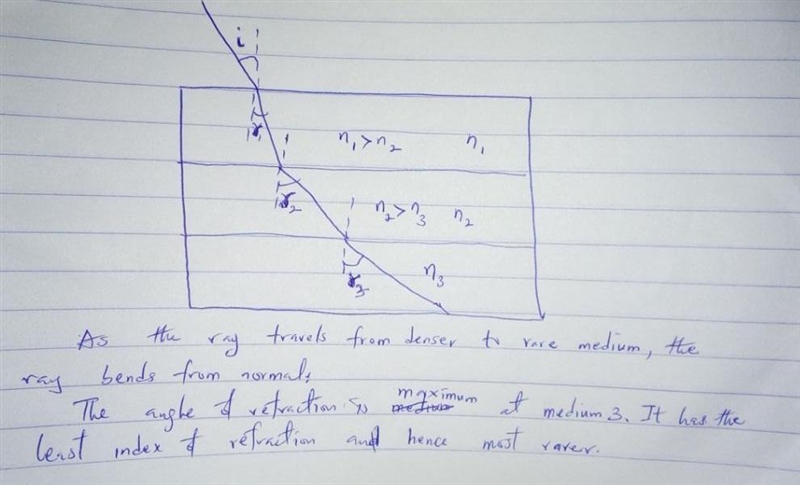 i
r₁
n₁>n₂ n₁
r₂
n₂>n₃ n₂
r₃
n₃
As the ray travels from denser to rare medium, the
ray bends from normal.
The angle of refraction is maximum at medium 3. It has the
least index of refraction and hence most rarer.